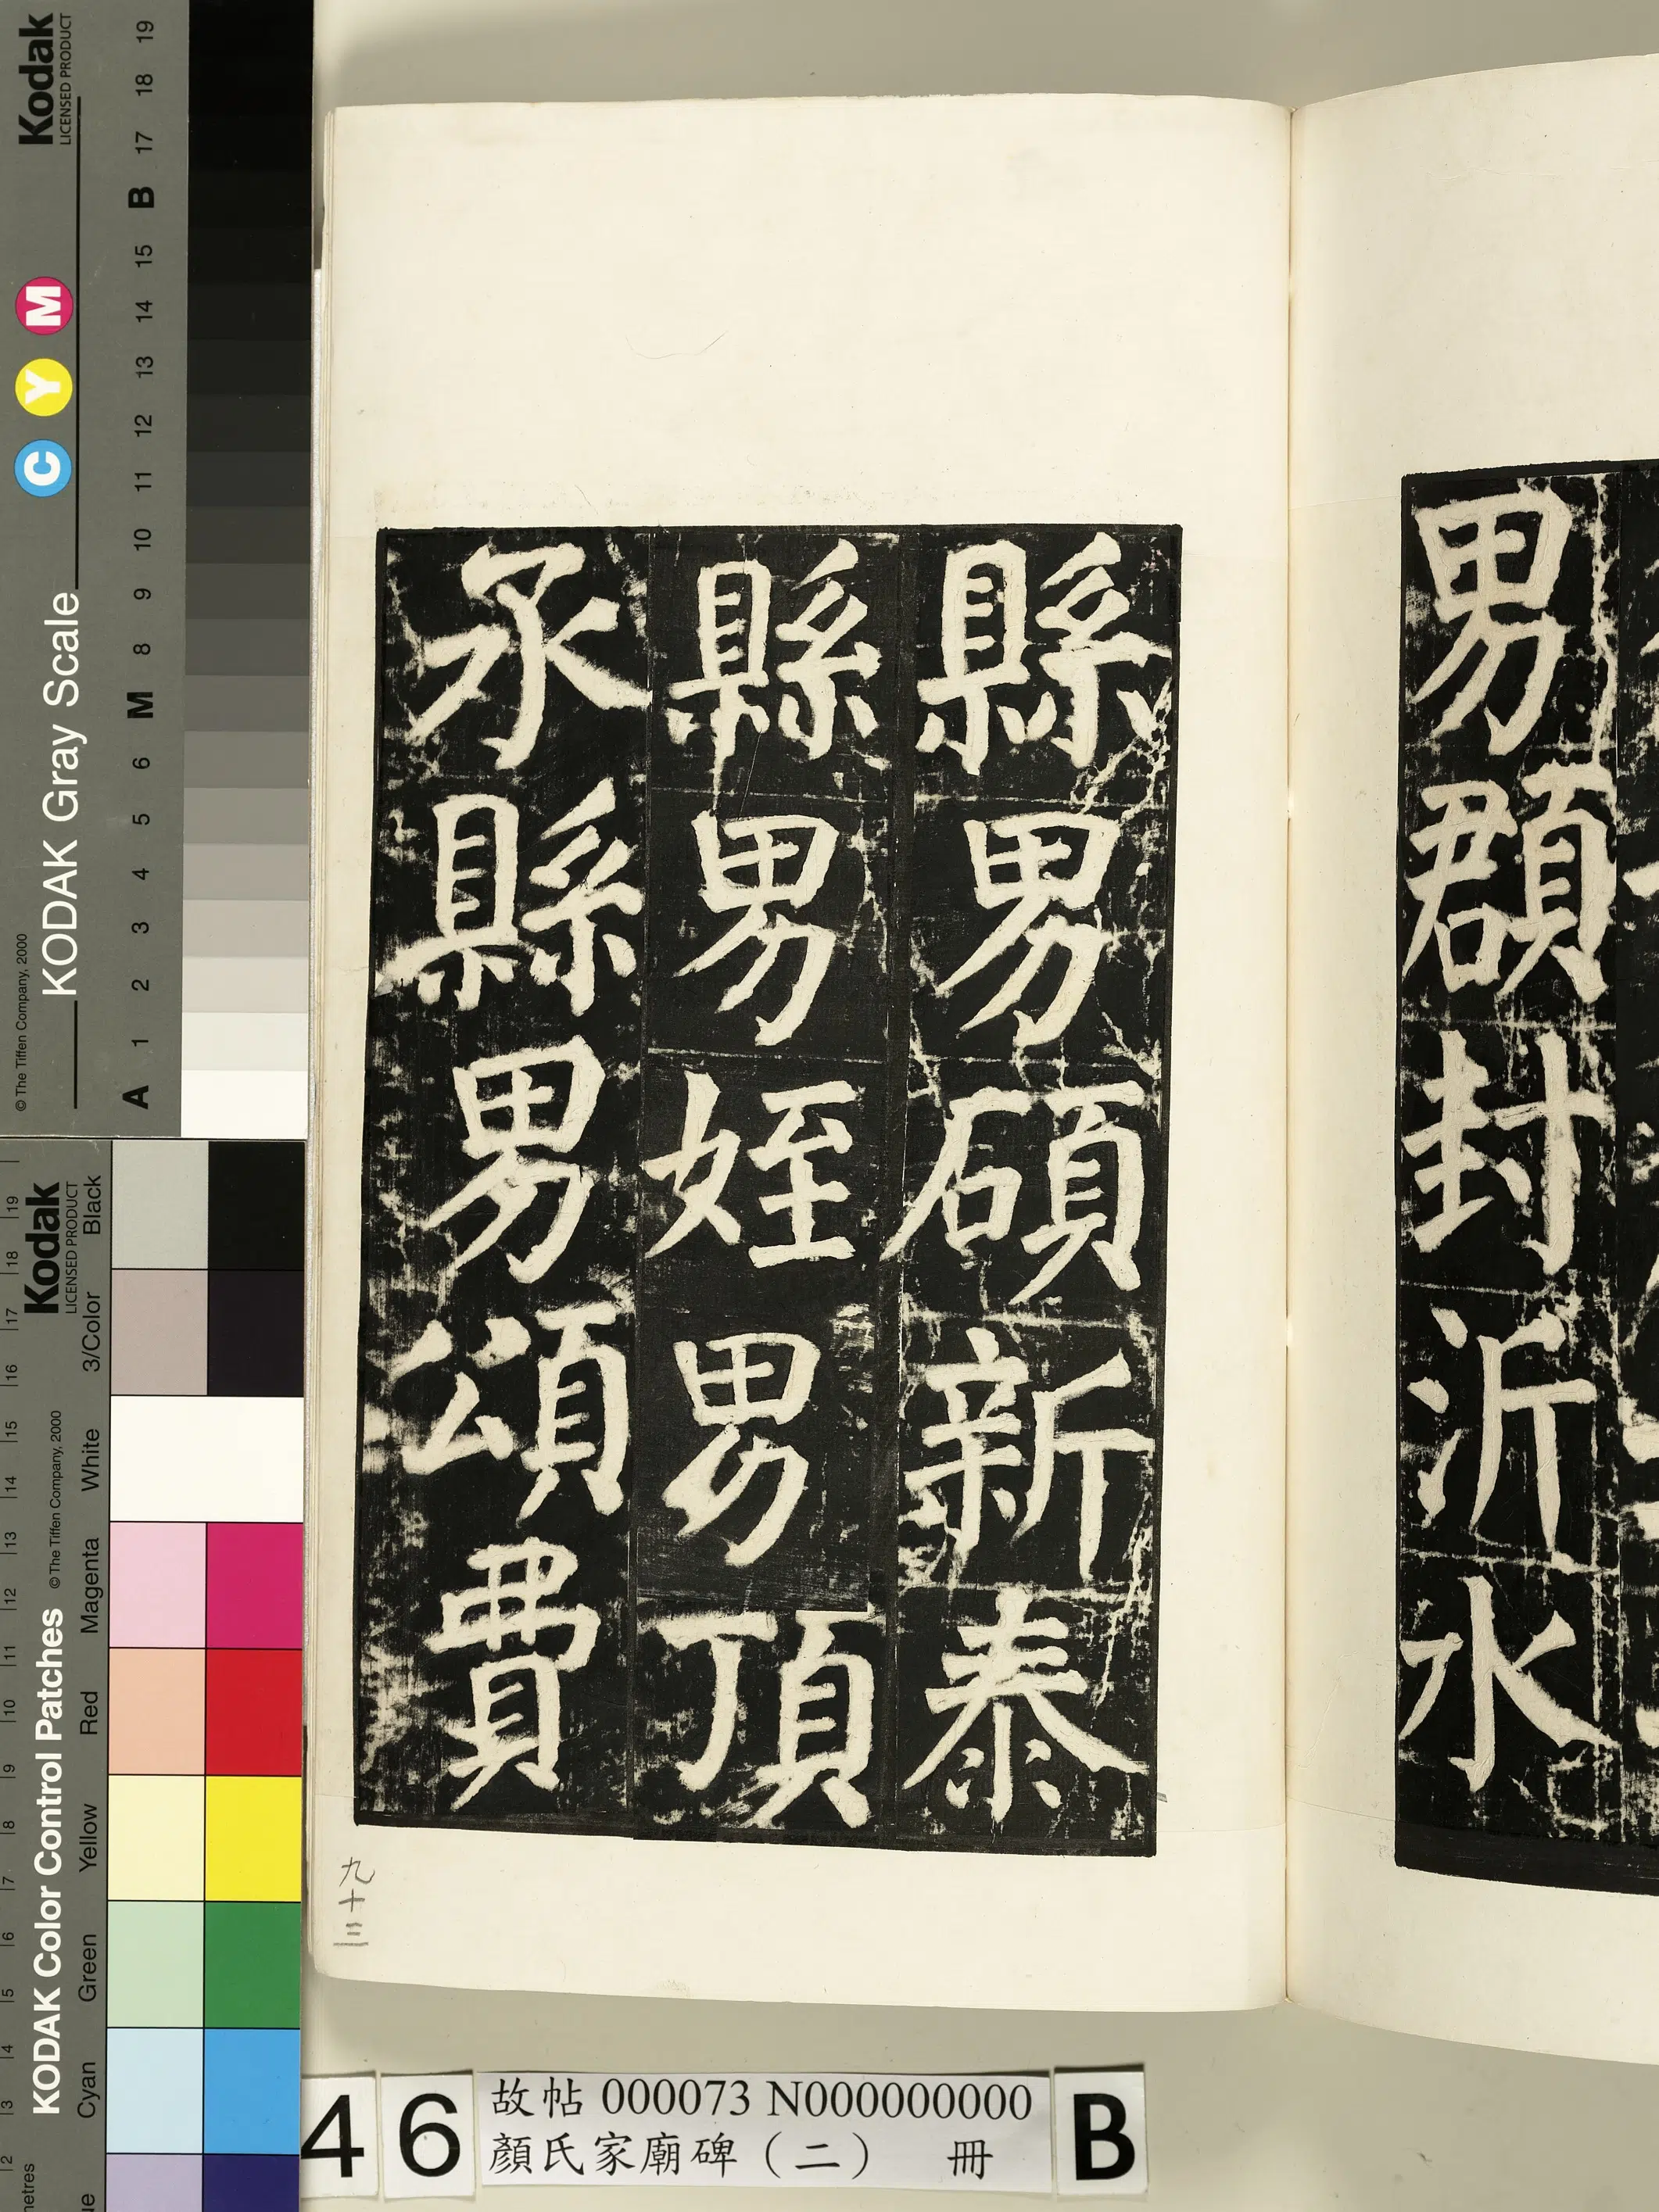 男頵封沂水
縣男碩新泰
縣男姪男頂
承縣男頌費
九十三
46
故帖 000073 N000000000
顏氏家廟碑（二） 冊
B
Kodak
LICENSED PRODUCT
C Y M
KODAK Gray Scale
© The Tiffen Company, 2000
A 1 2 3 4 5 6 M 8 9 10 11 12 13 14 15 B 17 18 19
Kodak
LICENSED PRODUCT
KODAK Color Control Patches
© The Tiffen Company, 2000
Cyan Green Yellow Red Magenta White 3/Color Black
2 3 4 5 6 7 8 9 10 11 12 13 14 15 16 17 18 19